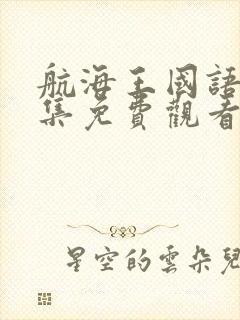 航海王國語
集免費觀看
星空的雲朵兒